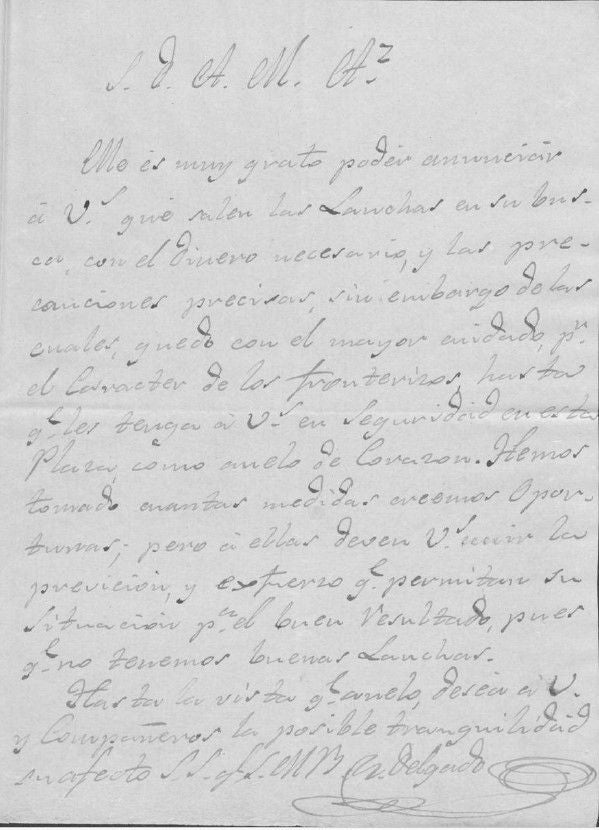 S. D. A. M. Az
Me es muy grato poder anunciar
á V.s que salen las Lanchas en su bus-
ca, con el Dinero necesario, y las pre-
cauciones precisas, sin embargo de las
cuales, quedo con el mayor cuidado, pr.
el Caracter de los fronterizos, hasta
q.e les tenga á V.s en seguridad en esta
Plaza, como anelo de Corazon. Hemos
tomado cuantas medidas creemos Opor-
tunas; pero á ellas deven V.s unir la
previción, y exfuerzo q.e permitan su
situación pa. el buen Resultado, pues
q.e no tenemos buenas Lanchas.
Hasta la vista q.e anelo, deséa á V.
y Compañeros la posible tranquilidad
su afecto S. S. q. S. M. B. Delgado